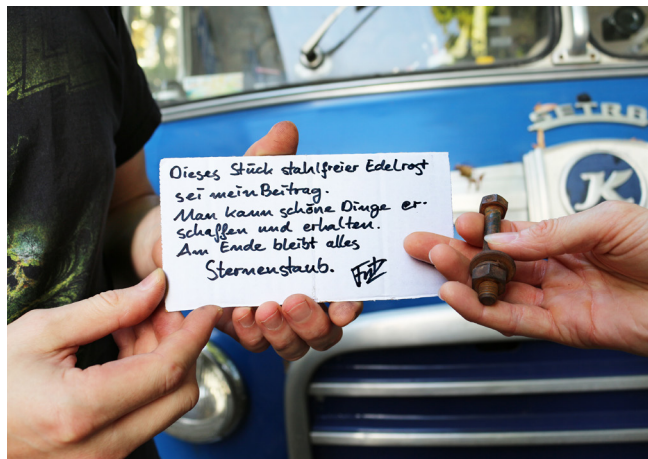 SETRA
K
Dieses Stück stahlfreier Edelrost
sei mein Beitrag.
Man kann schöne Dinge er-
schaffen und erhalten.
Am Ende bleibt alles
Sternenstaub.
Fritz